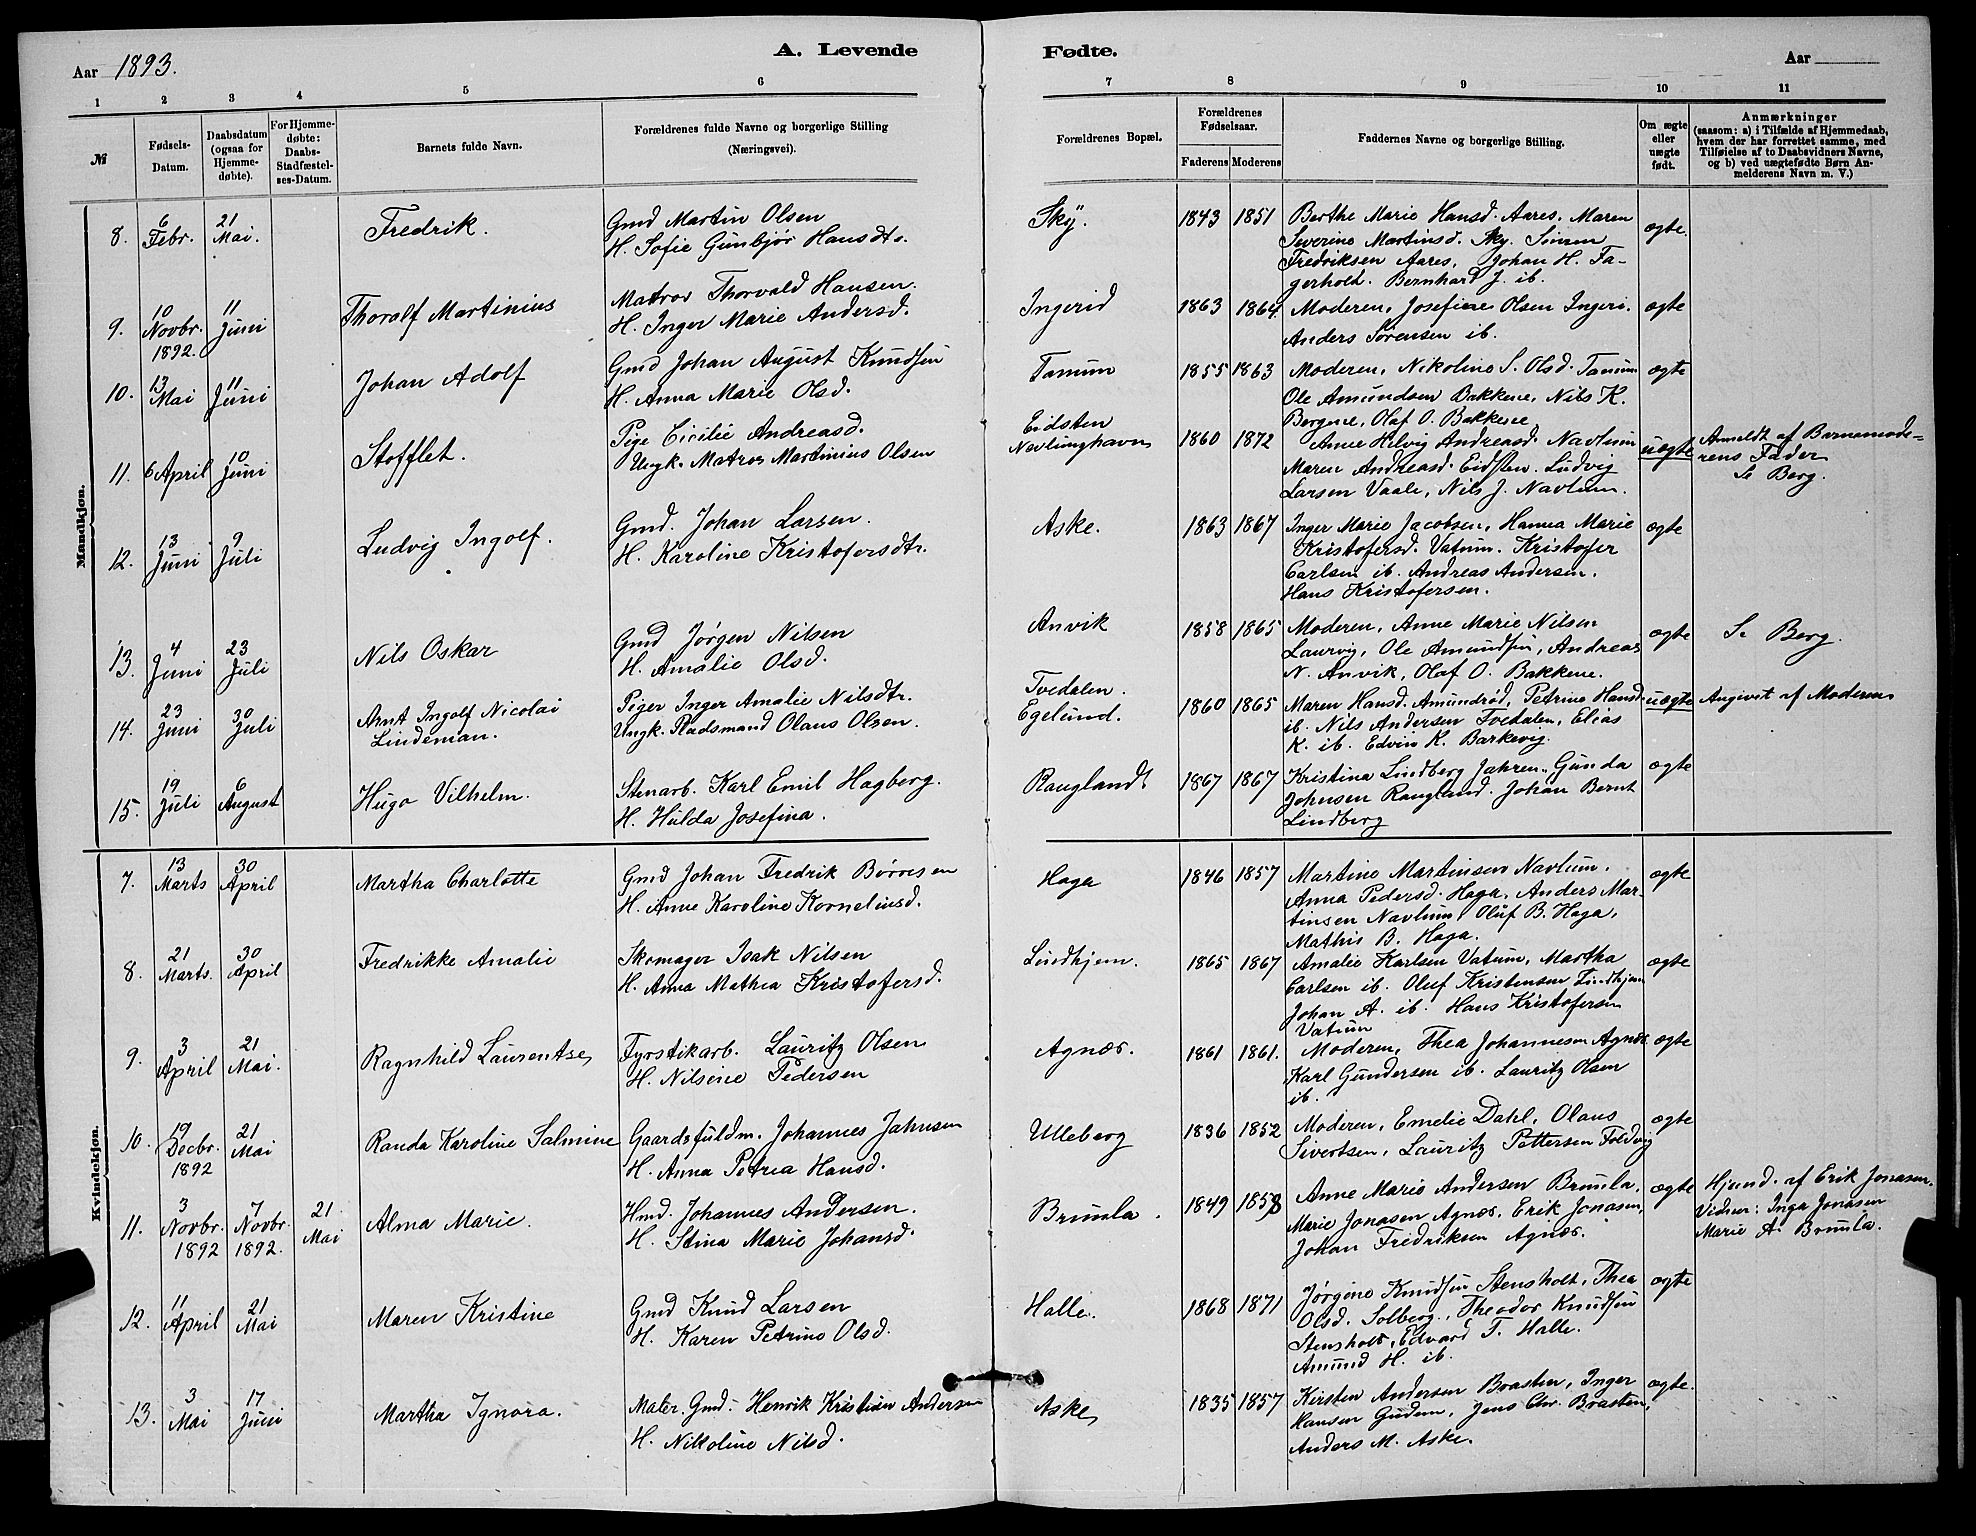 Aar 1893.
A. Levende
Fødte.
Aar
1 2 3 4 5 6 7 8 9 10 11
№
Fødsels-Datum.
Daabsdatum (ogsaa for Hjemmedøbte).
For Hjemmedøbte: Daabs-Stadfæstelses-Datum.
Barnets fulde Navn.
Forældrenes fulde Navne og borgerlige Stilling (Næringsvei).
Forældrenes Bopæl.
Forældrenes Fødselsaar.
Faderens Moderens
Faddernes Navne og borgerlige Stilling.
Om ægte eller uægte født.
Anmærkninger
(saasom: a) i Tilfælde af Hjemmedaab, hvem der har forrettet samme, med Tilføielse af to Daabsvidners Navne, og b) ved uægtefødte Børn Anmelderens Navn m. V.)
Mandkjøn.
8. 6 Febr. 21 Mai. Fredrik. Gmd Martin Olsen
H. Sofie Gunbjør Hansdtr. Sky. 1843 1851 Berthe Marie Hansd. Aares, Maren
Severine Martinsd. Sky. Simen
Fredriksen Aares, Johan H. Fa-
gerholt. Bernhard J. ib. ægte.
9. 10 Novbr. 1892. 11 Juni Thoralf Martinius Matros Thorvald Hansen.
H. Inger Marie Andersd. Ingerid 1863 1864. Moderen, Josefine Olsen Ingeri.
Anders Sørensen ib. ægte
10. 13 Mai 11 Juni Johan Adolf Gmd Johan August Knudsen
H. Anna Marie Olsd. Tanum 1855 1863 Moderen, Nikoline S. Olsd. Tanum
Ole Amundsen Bakkene, Nils K.
Bergene, Olaf O. Bakkene ægte
11. 6 April 10 Juni Stofflet. Pige Cicilie Andreasd.
Ungk. Matros Martinius Olsen Eidsten
Nevlunghavn 1860 1872 Anne Helvig Andreasd. Navlum
Maren Andreasd. Eidsten. Ludvig
Larsen Vaale, Nils J. Navlum. uægte Anmeldt af Barnemode-
rens Fader
Se Berg.
12. 13 Juni 9 Juli Ludvig Ingolf. Gmd. Johan Larsen.
H. Karoline Kristofersdtr. Aske. 1863 1867 Inger Marie Jacobsen, Hanna Marie
Kristofersd. Vatum. Kristofer
Carlsen ib. Andreas Andersen.
Hans Kristofersen. ægte
13. 4 Juni 23 Juli Nils Oskar Gmd Jørgen Nilsen
H. Amalie Olsd. Anvik 1858 1865 Moderen, Anne Marie Nilsen
Laurvig, Ole Amundsen, Andreas
N. Anvik, Olaf O. Bakkene. ægte Se Berg.
14. 23 Juni 30 Juli Arnt Ingolf Nicolai
Lindeman. Piger Inger Amalie Nilsdtr.
Ungk. Olaus Olsen. Tvedalen.
Egelund. 1860 1865 Maren Hansd. Amundrød, Petrine Hansd.
ib. Nils Andersen Tvedalen, Elias
K. ib. Edvin K. Barkevig. uægte Angivet af Moderen
15. 19 Juli 6 August Hugo Vilhelm. Stenarb. Karl Emil Hagberg.
H. Hulda Josefina. Raugland 1867 1867 Kristina Lindberg Jahren. Gunda
Johnsen Raugland. Johan Bernt
Lindberg ægte
Kvindekjøn.
7. 13 Marts 30 April Martha Charlotte Gmd Johan Fredrik Børresen
H. Anne Karoline Korneliusd. Haga 1846 1857 Martine Martinsen Navlum.
Anna Pedersd. Haga, Anders Mar-
tinsen Navlum, Oluf B. Haga,
Mathis B. Haga. ægte
8. 21 Marts. 30 April Fredrikke Amalie Skomager Isak Nilsen
H. Anna Mathea Kristofersd. Lindhjem. 1865 1867 Amalie Karlsen Vatum, Martha
Carlsen ib. Oluf Kristensen Lindhjem
Johan A. ib. Hans Kristofersen
Vatum ægte
9. 3 April 21 Mai. Ragnhild Laurentse, Fyrstikarb. Lauritz Olsen
H. Nilsine Pedersen Agnæs. 1861 1861. Moderen, Thea Johannesen Agnæs
Karl Gundersen ib. Lauritz Olsen
ib. ægte
10. 19 Decbr. 1892 21 Mai Randa Karoline Salmine Gaardsfuldm. Johannes Jahnsen
H. Anna Petrea Hansd. Ulleberg 1836 1852 Moderen, Emelie Dahl, Olaus
Sivertsen, Lauritz Pettersen Foldvig ægte
11. 3 Novbr. 1892 7 Novbr. 1892. 21 Mai Alma Marie. Hmd. Johannes Andersen.
H. Stina Marie Johansd. Brunla. 1849 1858 Anne Marie Andersen Brunla,
Marie Jonasen Agnæs. Erik Jonasen,
Johan Fredriksen Agnæs. ægte Hjemd. af Erik Jonasen.
Vidner: Inga Jonasen
Marie A. Brunla.
12. 11 April 21 Mai Maren Kristine Gmd Knud Larsen
H. Karen Petrine Olsd. Halle. 1868 1871 Jørgine Knudsen Stensholt, Thea
Olsd. Solberg, Theodor Knudsen
Stensholt, Edvard T. Halle.
Amund H. ib. ægte
13. 3 Mai 17 Juni Martha Ignora. Maler. Gmd. Henrik Kristian Andersen
H. Nikoline Nilsd. Aske 1835 1857 Kirsten Andersen Brasten, Inger
Hansen Gudem, Jens Chr. Brasten,
Anders M. Aske. ægte.